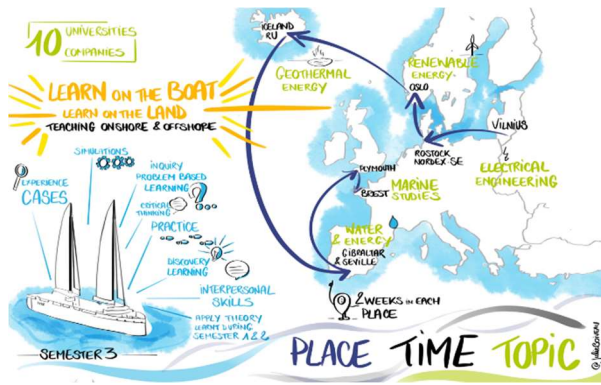 10 UNIVERSITIES
COMPANIES
LEARN ON THE BOAT
LEARN ON THE LAND
TEACHING ONSHORE & OFFSHORE
SIMULATIONS
EXPERIENCE
CASES
INQUIRY
PROBLEM BASED
LEARNING
CRITICAL
THINKING
PRACTICE
DISCOVERY
LEARNING
INTERPERSONAL
SKILLS
APPLY THEORY
LEARNT DURING
SEMESTER 1 & 2
SEMESTER 3
ICELAND
RU
GEOTHERMAL
ENERGY
RENEWABLE
ENERGY
OSLO
VILNIUS
ROSTOCK
NORDEX SE
ELECTRICAL
ENGINEERING
PLYMOUTH
BREST
MARINE
STUDIES
WATER
& ENERGY
GIBRALTAR
& SEVILLE
2 WEEKS IN EACH
PLACE
PLACE TIME TOPIC